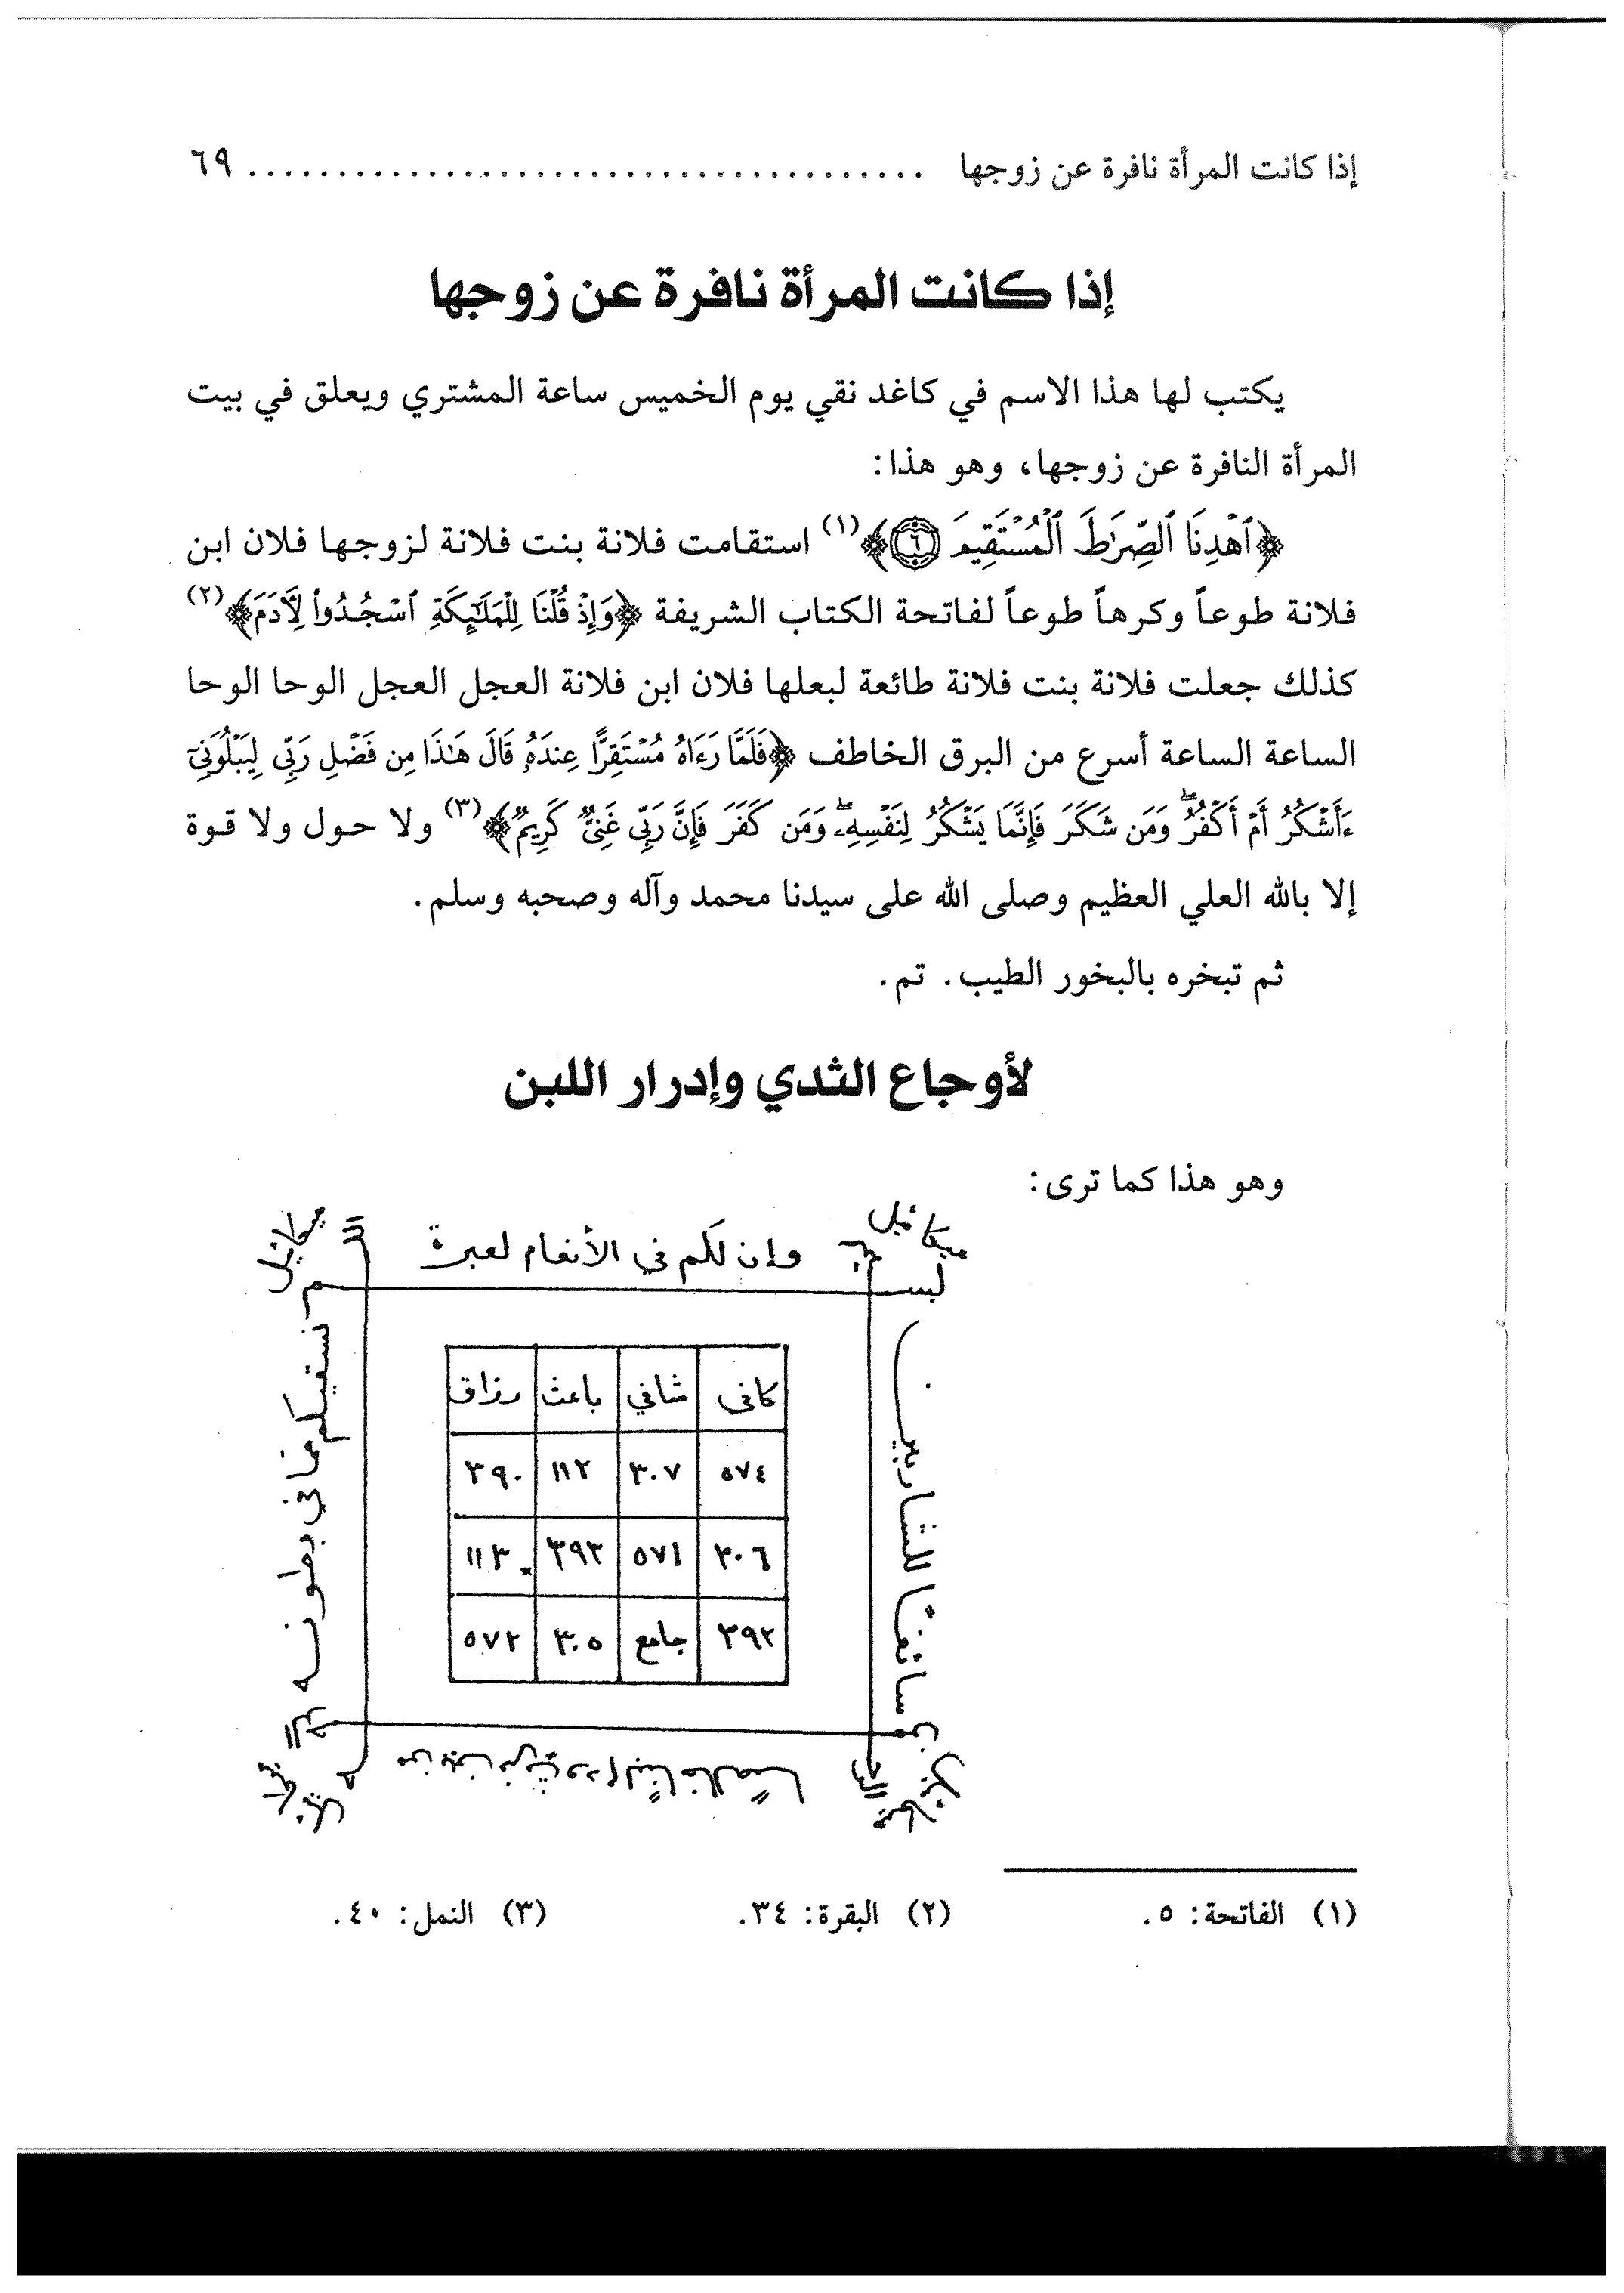 إذا كانت المرأة نافرة عن زوجها ...................................... ٦٩
إذا كانت المرأة نافرة عن زوجها
يكتب لها هذا الاسم في كاغد نقي يوم الخميس ساعة المشتري ويعلق في بيت
المرأة النافرة عن زوجها، وهو هذا:
﴿ٱهْدِنَا ٱلصِّرَٰطَ ٱلْمُسْتَقِيمَ ٦﴾(١) استقامت فلانة بنت فلانة لزوجها فلان ابن
فلانة طوعاً وكرهاً طوعاً لفاتحة الكتاب الشريفة ﴿وَإِذْ قُلْنَا لِلْمَلَٰٓئِكَةِ ٱسْجُدُوا۟ لِءَادَمَ﴾(٢)
كذلك جعلت فلانة بنت فلانة طائعة لبعلها فلان ابن فلانة العجل العجل الوحا الوحا
الساعة الساعة أسرع من البرق الخاطف ﴿فَلَمَّا رَءَاهُ مُسْتَقِرًّا عِندَهُۥ قَالَ هَٰذَا مِن فَضْلِ رَبِّى لِيَبْلُوَنِىٓ
ءَأَشْكُرُ أَمْ أَكْفُرُ ۖ وَمَن شَكَرَ فَإِنَّمَا يَشْكُرُ لِنَفْسِهِۦ ۖ وَمَن كَفَرَ فَإِنَّ رَبِّى غَنِىٌّ كَرِيمٌ﴾(٣) ولا حول ولا قوة
إلا بالله العلي العظيم وصلى الله على سيدنا محمد وآله وصحبه وسلم.
ثم تبخره بالبخور الطيب. تم.
لأوجاع الثدي وإدرار اللبن
وهو هذا كما ترى:
ميكائيل
وإن لكم في الأنعام لعبرة
نسقيكم مما في بطونه
من بين فرث ودم لبنًا خالصًا
سائغًا للشاربين
كافي شافي باعث رزاق
٥٧٤ ٣٠٧ ١١٢ ٣٩٠
٣٠٦ ٥٧١ ٣٩٣ ١١٣
٣٩٢ جامع ٣٠٥ ٥٧٢
(١) الفاتحة: ٥. (٢) البقرة: ٣٤. (٣) النمل: ٤٠.